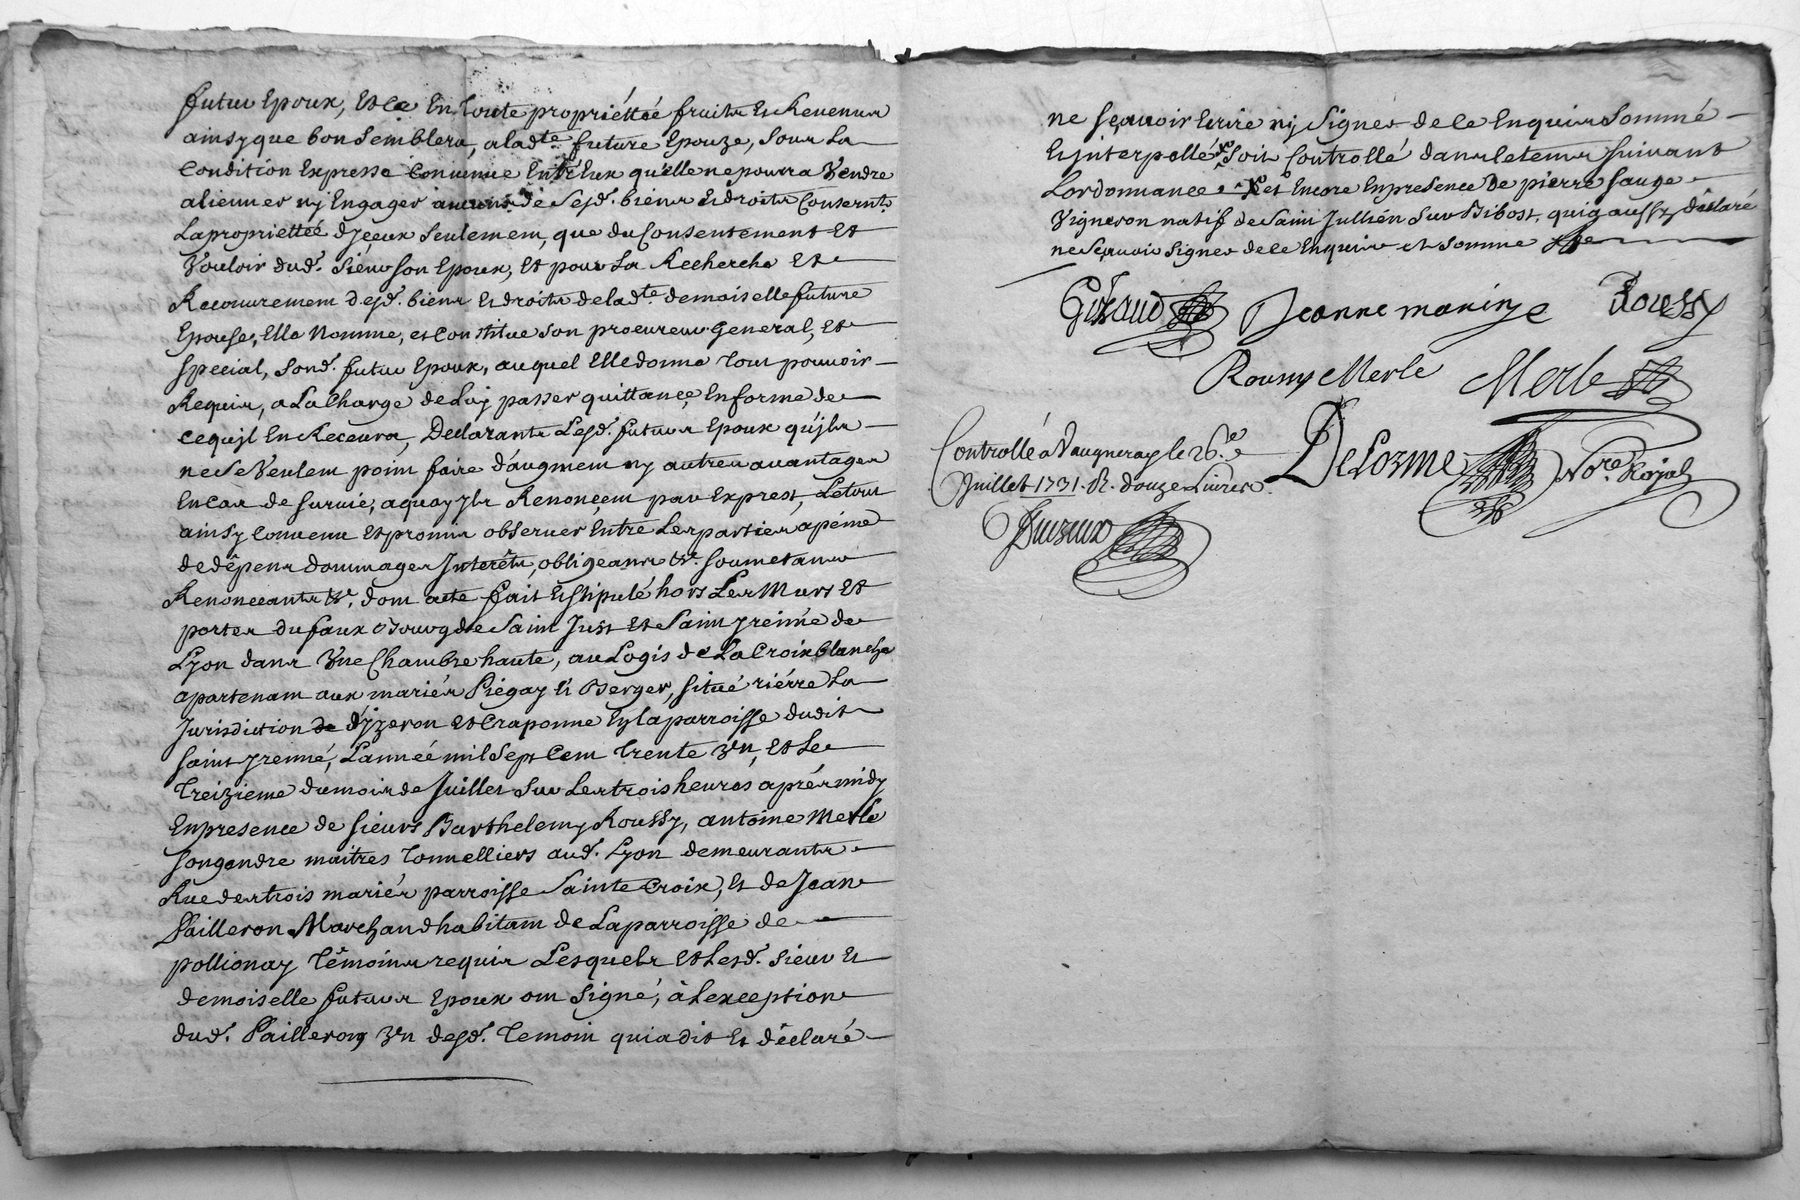 futur Epoux, Et ce En Toute propriéttée fruits Et Revenus
ainsy que bon Semblera, a lad.te future Epouze, Sous La
Condition Expresse Convenue Entr'Eux qu'elle ne pourra Vendre
aliener ny Engager aucuns de Sesd. biens Et droits Consernt.
La propriettée d'jceux Seulement, que du Consentement Et
Vouloir dud. Sieur son Epoux, Et pour La Recherche Et
Recouvrement desd. biens Et droits de lad.te demoiselle future
Epouse, Elle Nomme, et Constitue Son procureur General, Et
Special, Sond. futur Epoux, auquel Elle donne Tout pouvoir
Requis, a La Charge de Luy passer quittance En forme de
ce qu'jl En Recevra, Declarants Lesd. futurs Epoux qu'jls
ne Se Veulent point faire d'augment ny autres avantages
En cas de Survie, a quoy jls Renoncent par Exprest, Le tout
ainsy Convenu Et promis observer Entre Les parties a péine
de dêpens dommages Interêts, obligeants &c. soumetants
Renonceants &c. dont acte fait Et Stipulé hors Les Murs Et
portes du faux Bourg de Saint Just Et Saint jrenné de
Lyon dans Vne Chambre haute, au Logis de La Croix blanche
apartenant aux mariés Piégay Et Berger, situé riére La
Jurisdiction de d'jzeron Et Craponne Ez la parroisse dudit
Saint jrenné, L'année mil Sept Cent Trente Vn, Et Le
Treizieme du mois de Juillet Sur Les trois heures aprés midy
En presence de Sieurs Barthelemy Roussy, antoine Merle
Son gendre maitres Tonnelliers aud. Lyon demeurants
Rue des trois mariés parroisse Sainte Croix, Et de Jean
Pailleron Marchand habitant de La parroisse de
pollionay Témoins requis Lesquels Et Lesd. Sieur Et
demoiselle futurs Epoux ont Signé, à L'exception
dud. Pailleron Vn desd. Temoin qui a dit Et déclaré
ne sçavoir Ecrire ny Signer de ce Enquis Sommé
Et jnterpellé Soit Controllé dans Le tems Suivant
L'ordonnance. et Encore En presence de pierre Sauge
Vigneron natif de Saint Jullien Sur Bibost, qui a aussy déclaré
ne Sçavoir Signer de ce Enquis et Sommé
Giraud Jeanne maninge Roussy
Roussy Merle Merle
Controllé à Vaugneray le 26.e
Juillet 1731. R. douze Livres.
Delorme No.re Royal